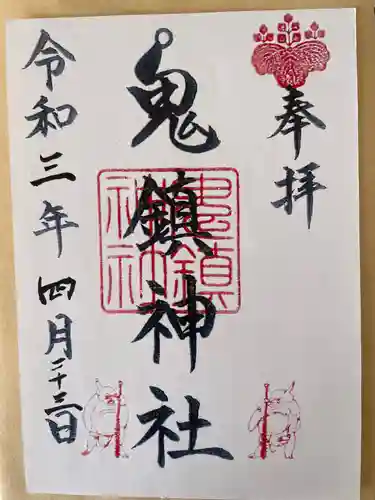 奉拝
鬼鎮神社
鬼鎮神社
令和三年四月二十三日